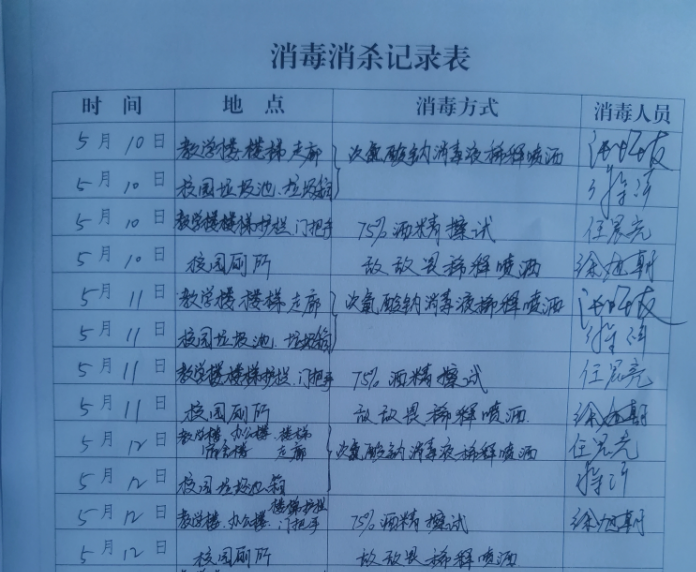 消毒消杀记录表
时 间 地 点 消毒方式 消毒人员
5月10日 教学楼楼梯走廊 次氯酸钠消毒液稀释喷洒
5月10日 校园垃圾池、垃圾箱
5月10日 教学楼楼梯护栏、门把手 75%酒精擦试 任昆亮
5月10日 校园厕所 敌敌畏稀释喷洒 徐旭朝
5月11日 教学楼楼梯走廊 次氯酸钠消毒液稀释喷洒
5月11日 校园垃圾池、垃圾箱
5月11日 教学楼楼梯护栏、门把手 75%酒精擦试 任昆亮
5月11日 校园厕所 敌敌畏稀释喷洒 徐旭朝
5月12日 教学楼、办公楼、楼梯
宿舍楼 走廊 次氯酸钠消毒液稀释喷洒 任昆亮
5月12日 校园垃圾池箱
5月12日 教学楼、办公楼、楼梯护栏
门把手 75%酒精擦试 徐旭朝
5月12日 校园厕所 敌敌畏稀释喷洒